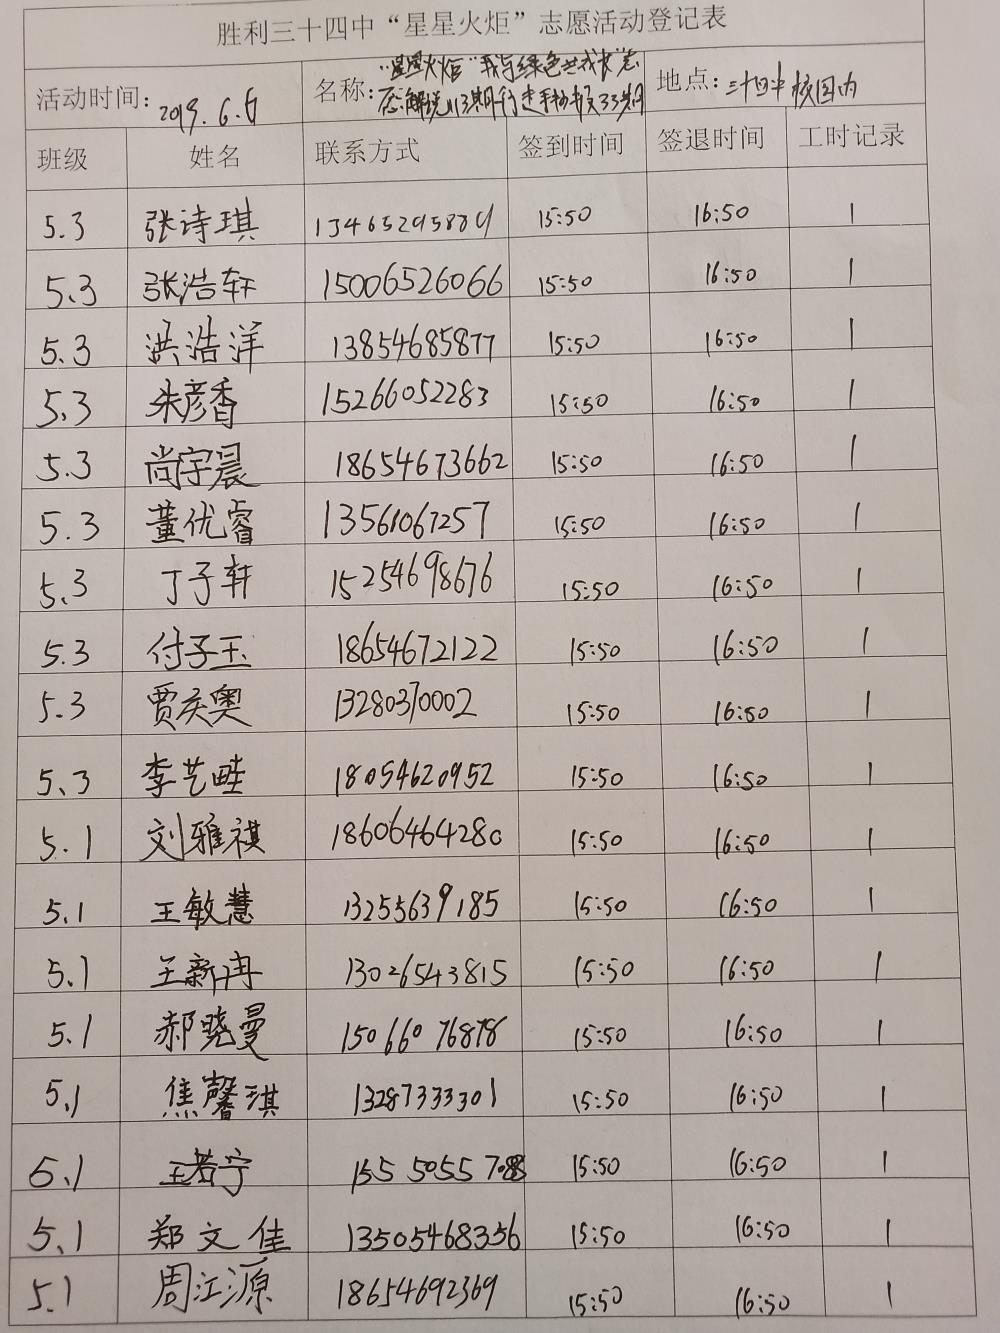 胜利三十四中“星星火炬”志愿活动登记表
活动时间: 2019.6.6 名称: “星星火炬”“我与绿色共成长”志愿解说113期行走手抄报33期 地点: 三十四中校园内
班级 姓名 联系方式 签到时间 签退时间 工时记录
5.3 张诗琪 13465295879 15:50 16:50 1
5.3 张浩轩 15006526066 15:50 16:50 1
5.3 洪浩洋 13854685877 15:50 16:50 1
5.3 朱彦香 15266052283 15:50 16:50 1
5.3 尚宇晨 18654673662 15:50 16:50 1
5.3 董优睿 13561067257 15:50 16:50 1
5.3 丁子轩 15254698676 15:50 16:50 1
5.3 付子玉 18654672122 15:50 16:50 1
5.3 贾奕奥 13280370002 15:50 16:50 1
5.3 李艺畦 18054620952 15:50 16:50 1
5.1 刘雅祺 18606464280 15:50 16:50 1
5.1 王敏慧 13255639185 15:50 16:50 1
5.1 王新冉 13026543815 15:50 16:50 1
5.1 郝晓曼 15066076878 15:50 16:50 1
5.1 焦馨淇 13287333301 15:50 16:50 1
5.1 王若宁 15550557088 15:50 16:50 1
5.1 郑文佳 13505468356 15:50 16:50 1
5.1 周江源 18654692369 15:50 16:50 1